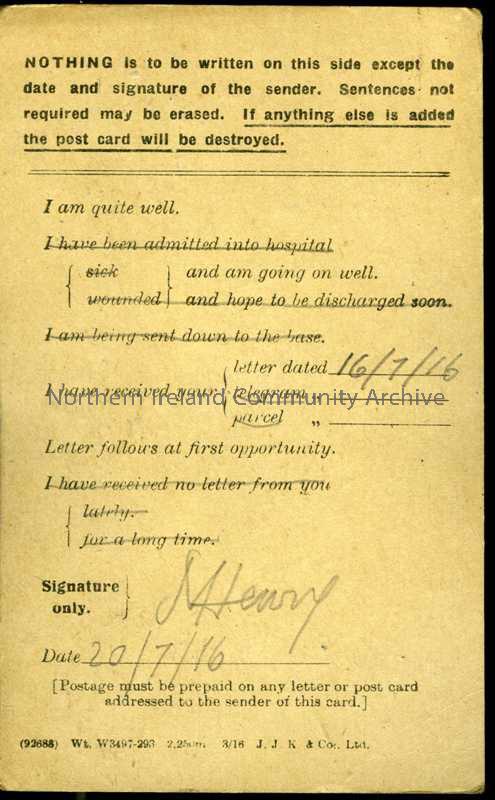 NOTHING is to be written on this side except the
date and signature of the sender. Sentences not
required may be erased. If anything else is added
the post card will be destroyed.
I am quite well.
I have been admitted into hospital
sick and am going on well.
wounded and hope to be discharged soon.
I am being sent down to the base.
letter dated 16/7/16
I have received your telegram „
parcel „
Northern Ireland Community Archive
Letter follows at first opportunity.
I have received no letter from you
lately.
for a long time.
Signature only. Henry
Date 20/7/16
[Postage must be prepaid on any letter or post card
addressed to the sender of this card.]
(92688) Wt. W3497-293 2,25om. 3/16 J. J. K. & Co., Ltd.